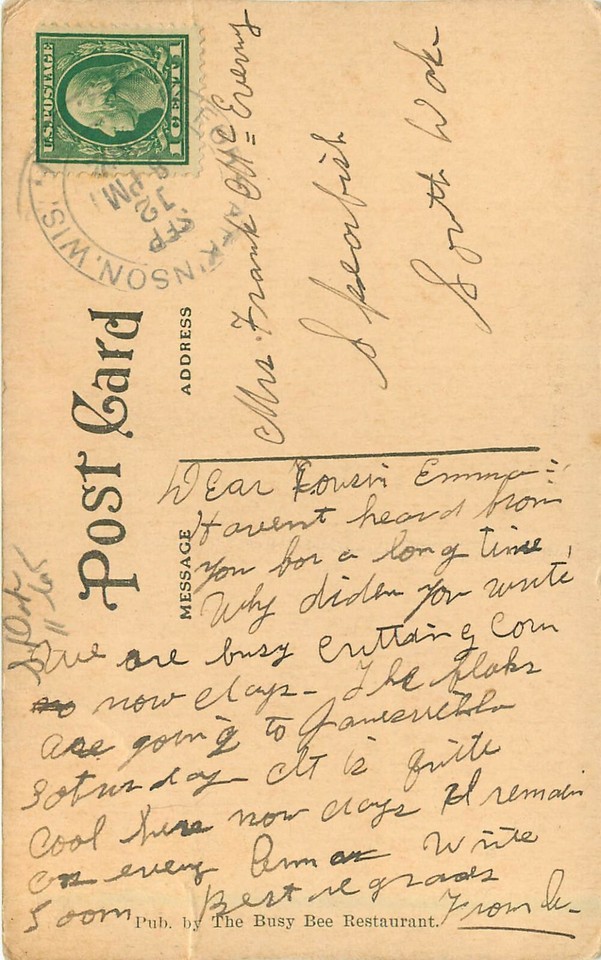 U.S. POSTAGE
1 CENT 1
KINSON, WIS.
SEP
12
PM
Post Card
ADDRESS
Mrs. Frank Ott =
Spearfish
South Dak
MESSAGE
Dear Cousin Emma =
Havent heard from
you for a long time,
Why diden you write
We are busy cutting Corn
now days - The folks
are going to Janesville
Saturday It is quite
cool here now days I remain
Write
Soon Best regards
From
Pub. by The Busy Bee Restaurant.